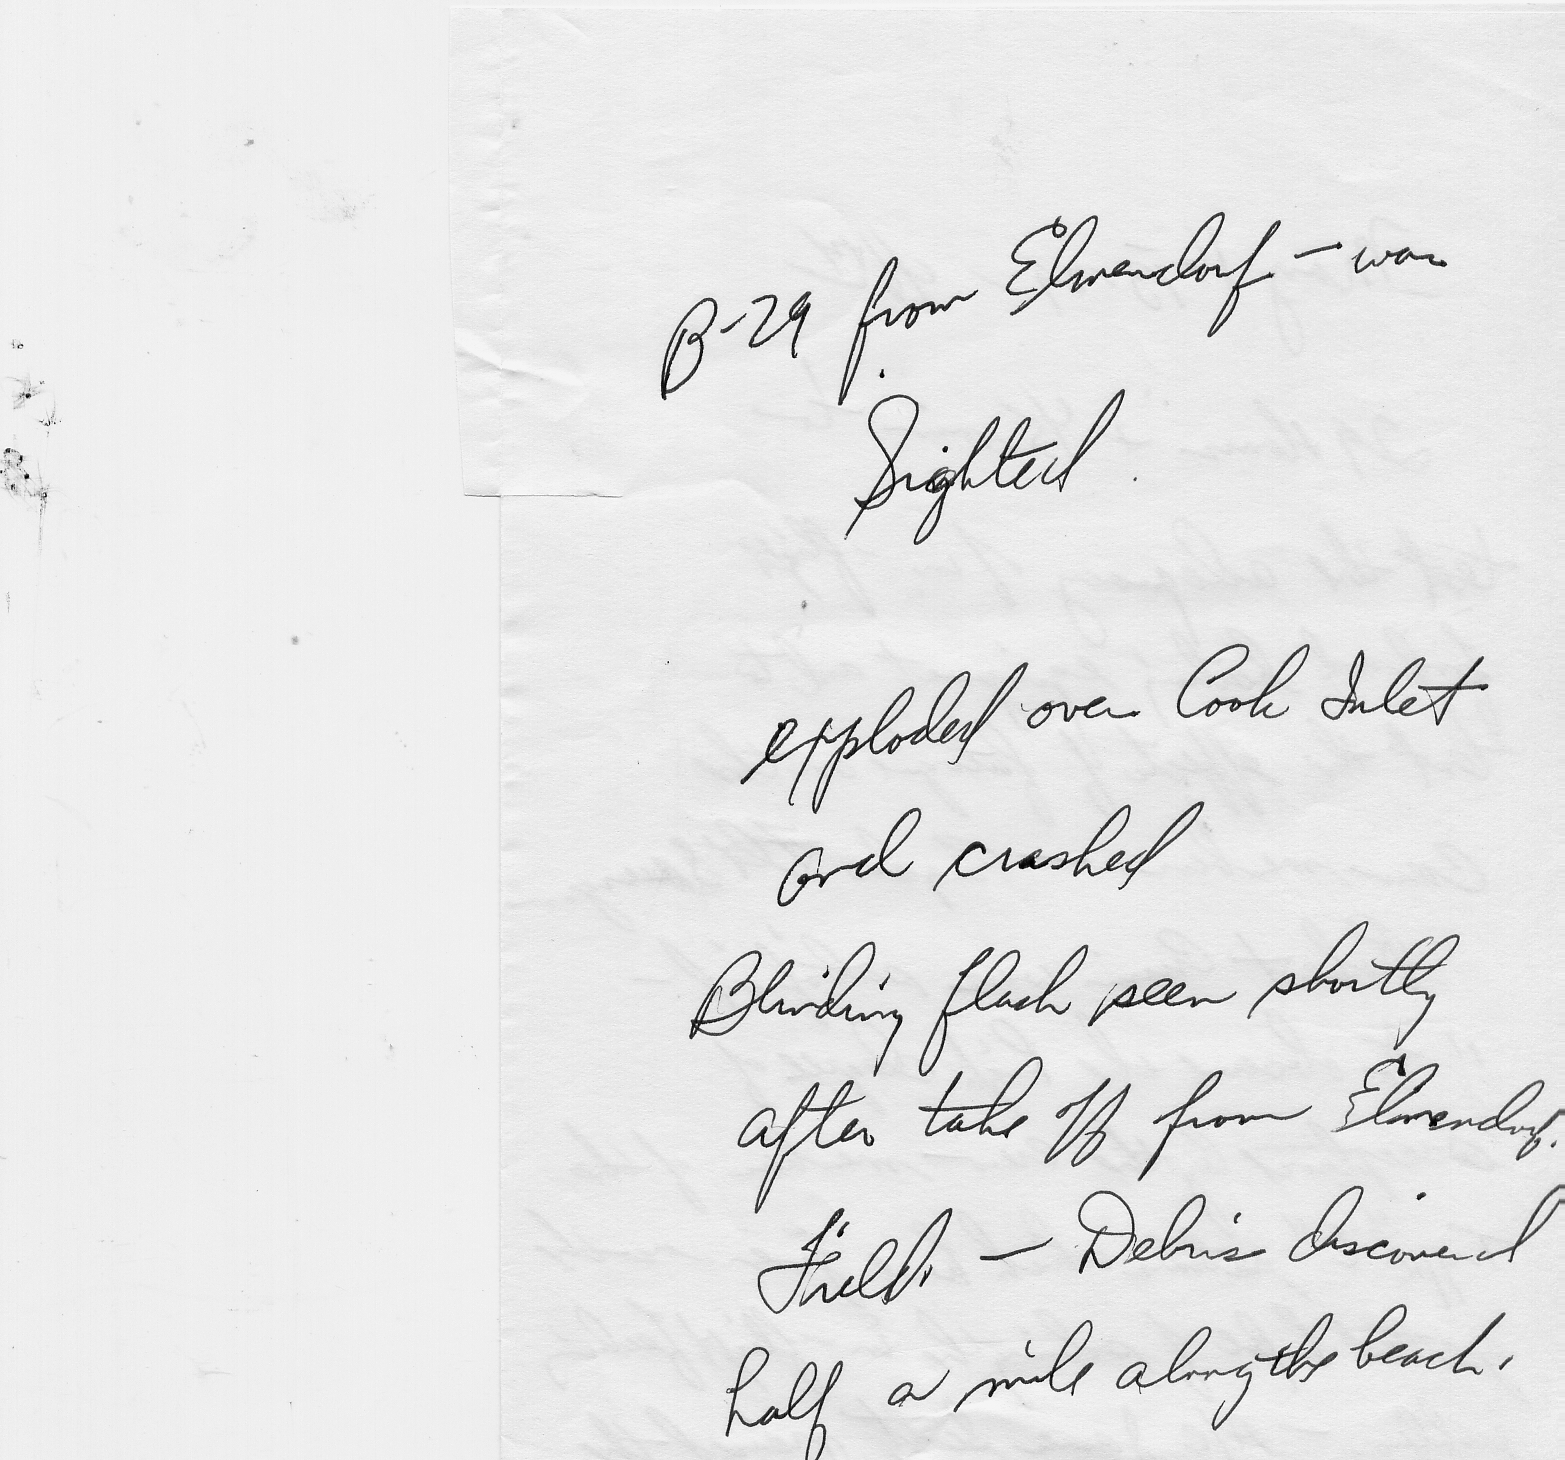 B-29 from Elmendorf - was
Sighted.
exploded over Cook Inlet
and crashed
Blinding flash seen shortly
after take off from Elmendorf.
Field. - Debris discovered
half a mile along the beach.